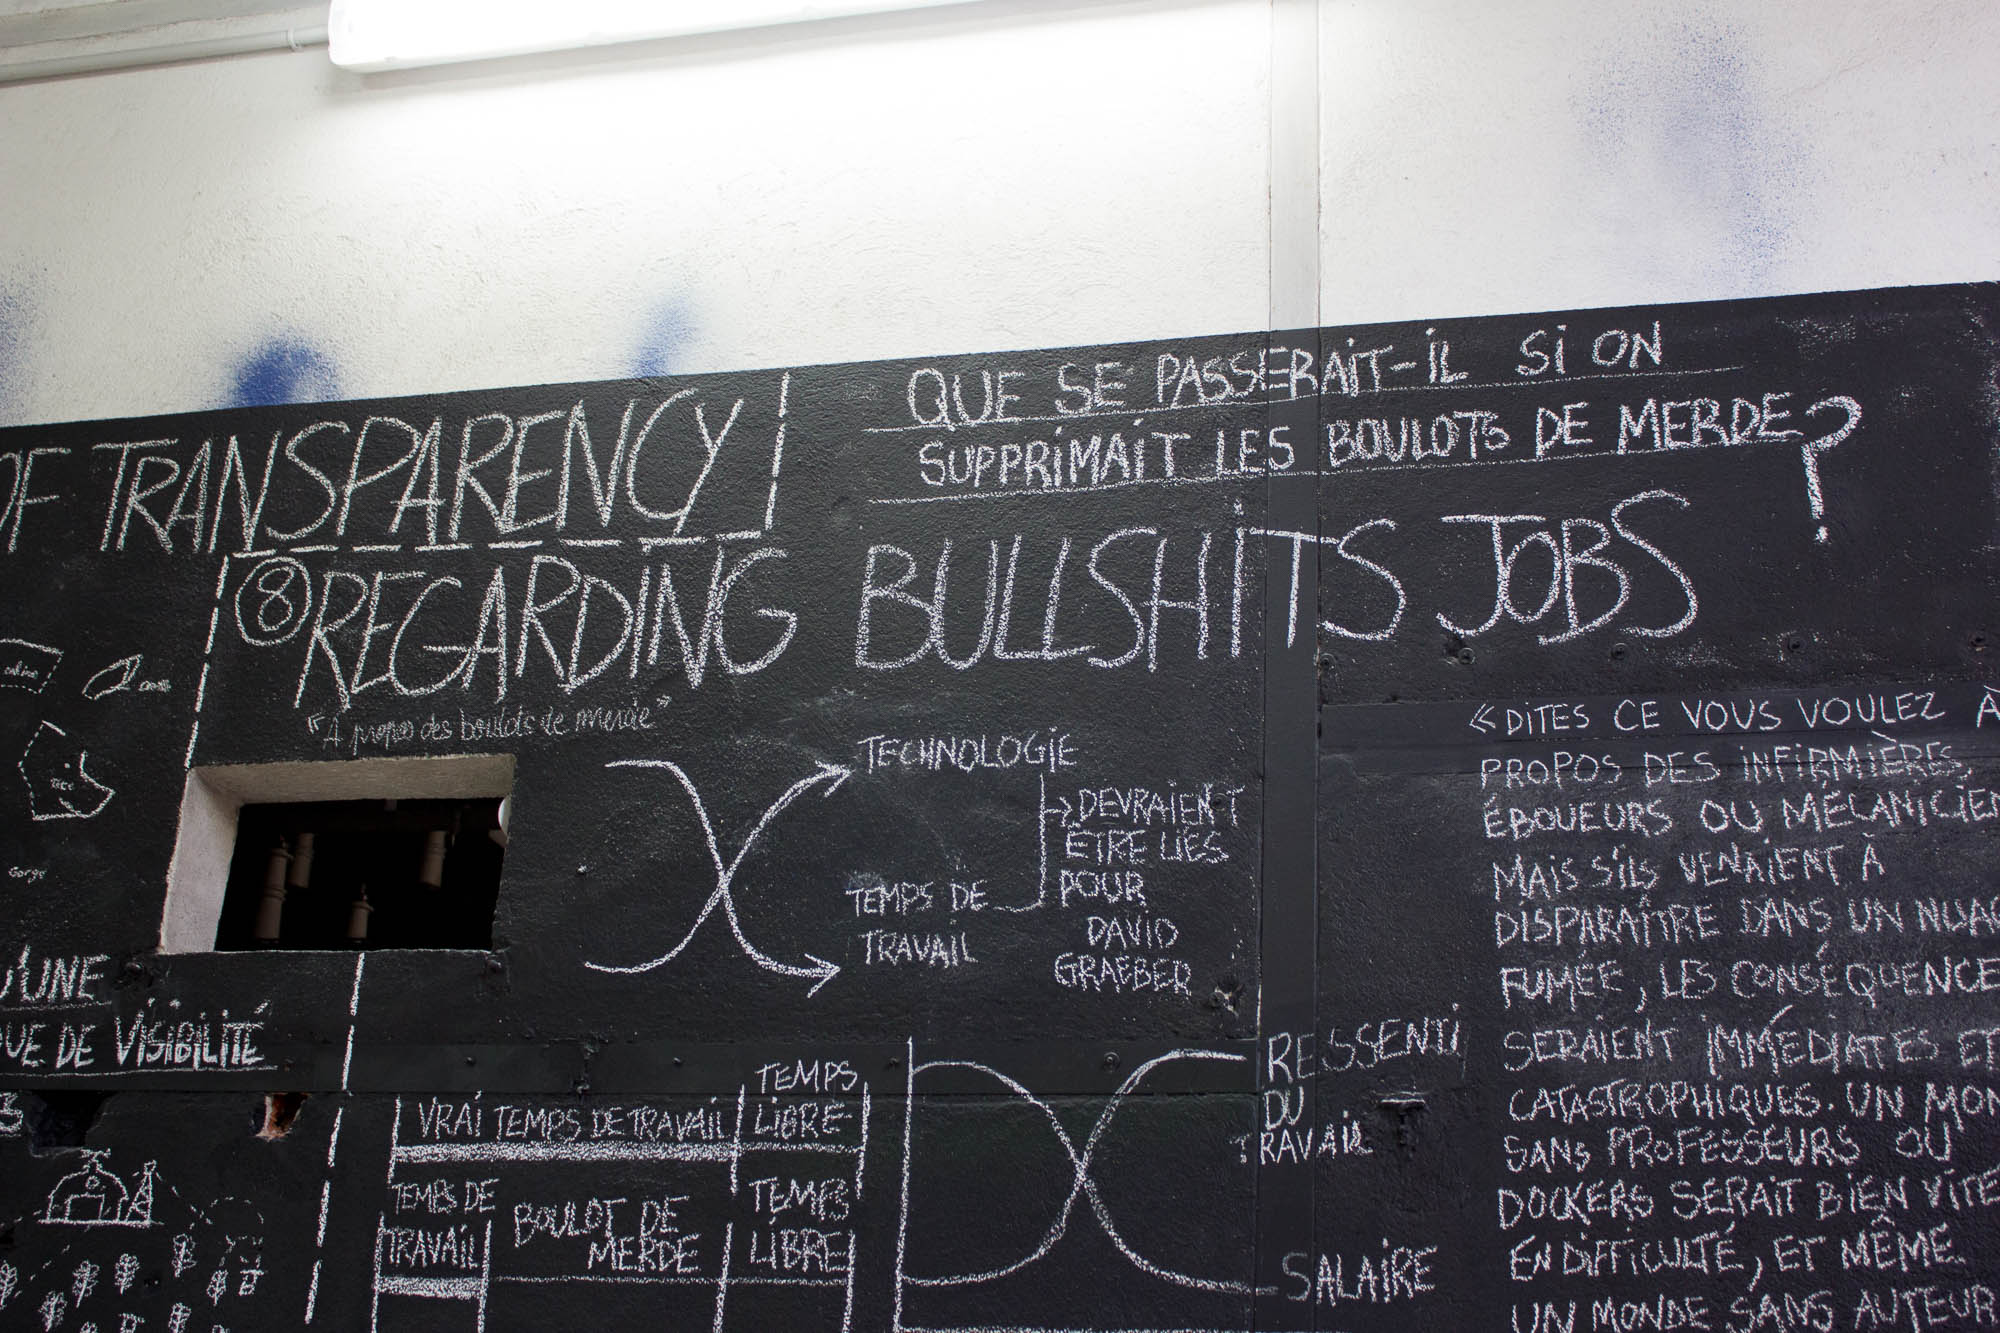 OF TRANSPARENCY
QUE SE PASSERAIT-IL SI ON
SUPPRIMAIT LES BOULOTS DE MERDE ?
8 REGARDING BULLSHITS JOBS
"A propos des boulots de merde"
TECHNOLOGIE
DEVRAIENT
ETRE LIES
POUR
DAVID
GRAEBER
TEMPS DE
TRAVAIL
« DITES CE VOUS VOULEZ À
PROPOS DES INFIRMIÈRES,
ÉBOUEURS OU MÉCANICIEN
MAIS S'ILS VENAIENT À
DISPARAÎTRE DANS UN NUAG
FUMÉE, LES CONSÉQUENCE
SERAIENT IMMÉDIATES ET
CATASTROPHIQUES. UN MON
SANS PROFESSEURS OU
DOCKERS SERAIT BIEN VITE
EN DIFFICULTÉ, ET MÊME
UN MONDE SANS AUTEUR
U'UNE
QUE DE VISIBILITÉ
3
VRAI TEMPS DE TRAVAIL
TEMPS
LIBRE
TEMPS DE
TRAVAIL
BOULOT DE
MERDE
TEMPS
LIBRE
RESSENTI
DU
TRAVAIL
SALAIRE